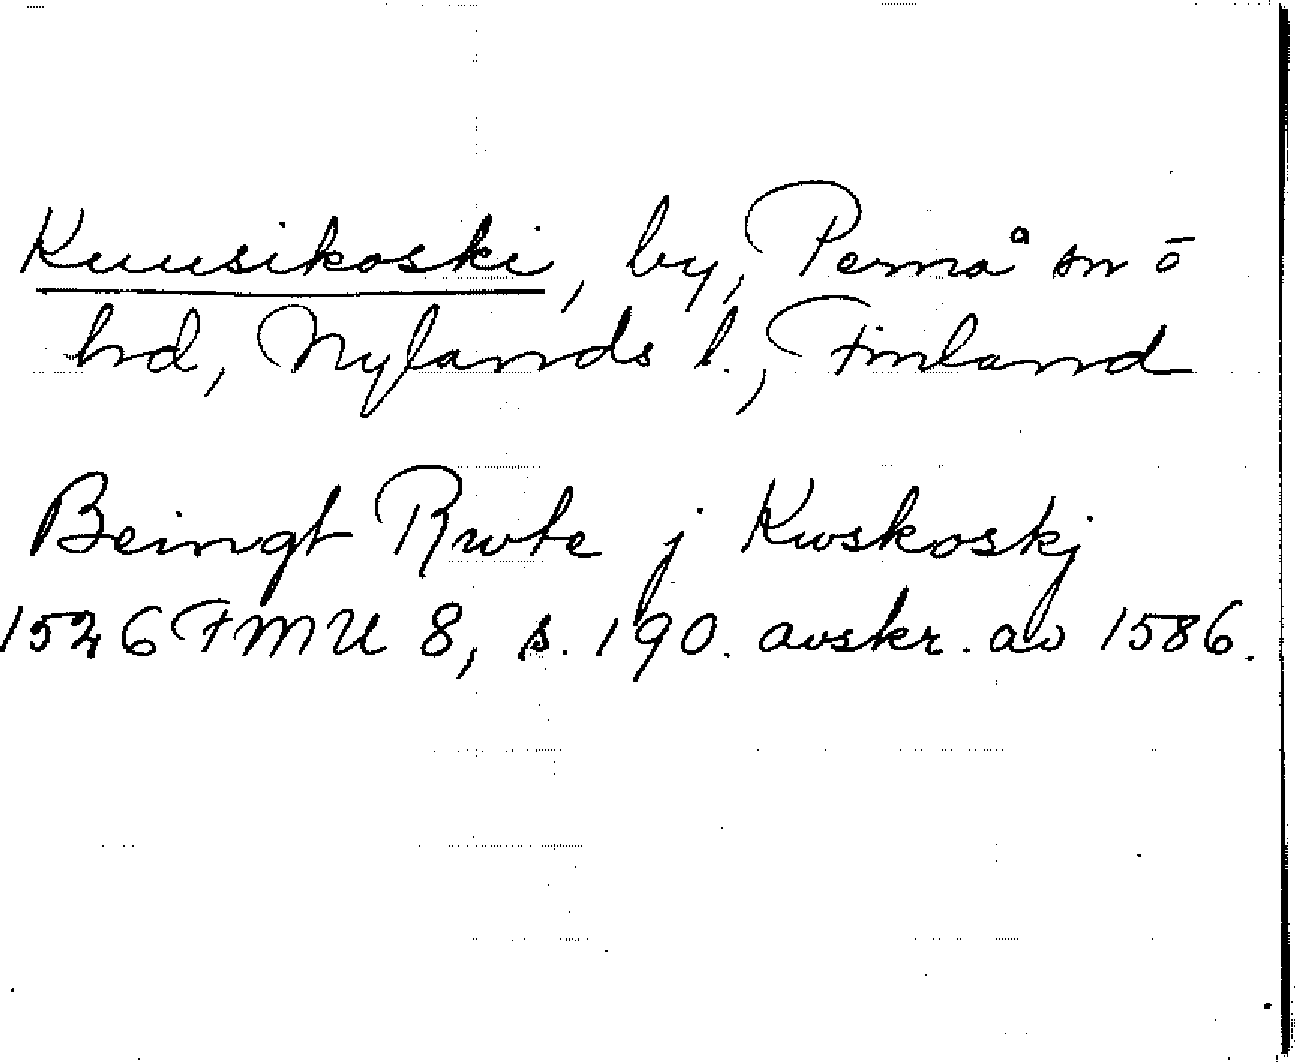 Kuusikoski, by, Pernå sn o
hd, Nylands l., Finland
Beingt Rwte j Kwskoskj
1526 FMU 8, s. 190. avskr. av 1586.